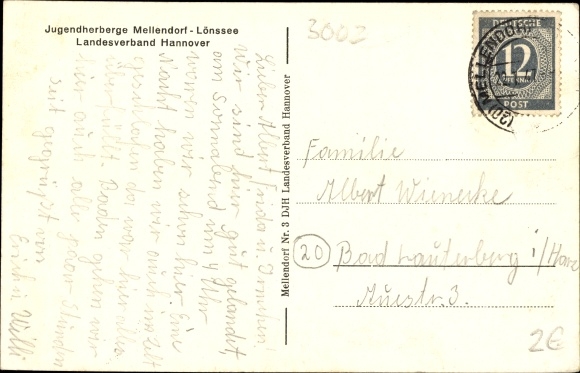 Jugendherberge Mellendorf - Lönssee
Landesverband Hannover
Lieber Albert Frida u. Irmchen!
Wir sind hier gut gelandet,
am Sonnabend um 4 Uhr
waren wir schon hier. Eine
Nacht haben wir auch im Zelt
geschlafen da war hier alles
überfüllt. Baden gehen wir
hier auch alle paar Stunden
Seit gegrüßt von
Erich u. Willi
Mellendorf Nr. 3 DJH Landesverband Hannover
3002
DEUTSCHE
12
PFENNIG
POST
(20) MELLENDORF
Familie
Albert Wienecke
20 Bad Lauterberg i/Harz
Auestr. 3.
2€